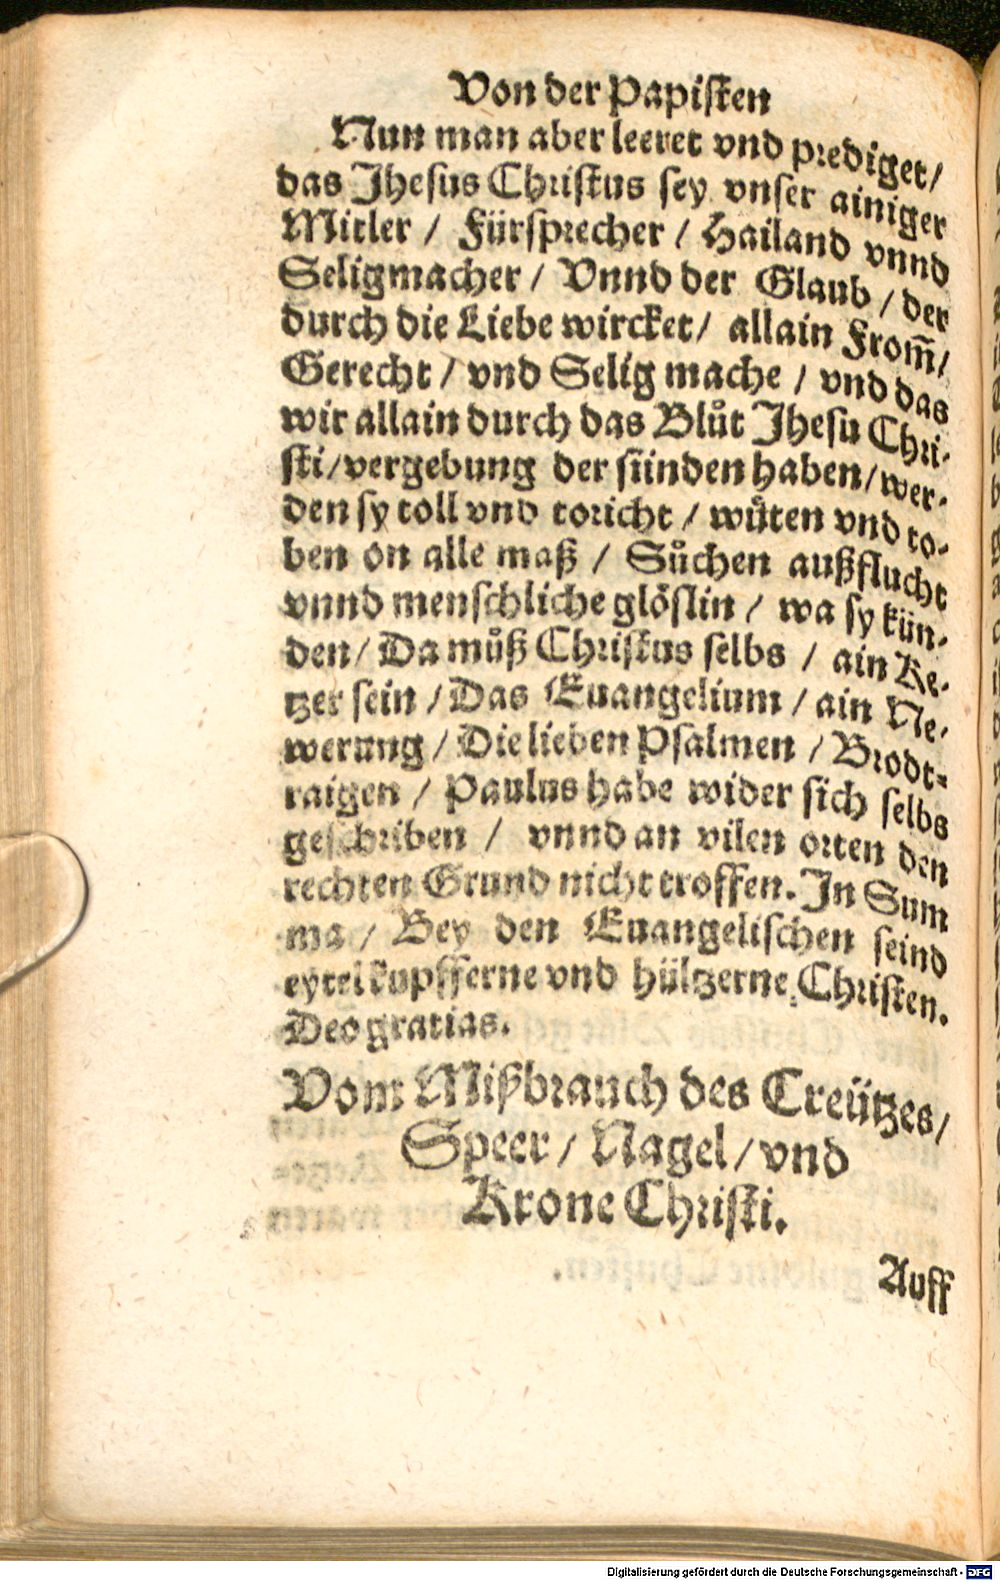 Von der Papisten
Nun man aber leeret vnd prediget/
das Jhesus Christus sey vnser ainiger
Mitler / Fürsprecher / Hailand vnnd
Seligmacher / Vnnd der Glaub / der
durch die Liebe wircket/ allain From̃/
Gerecht / vnd Selig mache / vnd das
wir allain durch das Blůt Jhesu Chri-
sti/vergebung der sünden haben/wer-
den sy toll vnd toricht / wüten vnd to-
ben on alle maß / Sůchen außflucht
vnnd menschliche glöslin / wa sy kün-
den/ Da můß Christus selbs / ain Ke-
tzer sein / Das Euangelium / ain Ne-
werung / Die lieben Psalmen / Brodt-
raigen / Paulus habe wider sich selbs
geschriben / vnnd an vilen orten den
rechten Grund nicht troffen. In Sum
ma / Bey den Euangelischen seind
eytel kupfferne vnd hültzerne Christen.
Deo gratias.
Vom Mißbrauch des Creützes/
Speer / Nagel / vnd
Krone Christi.
Auff
Digitalisierung gefördert durch die Deutsche Forschungsgemeinschaft - DFG